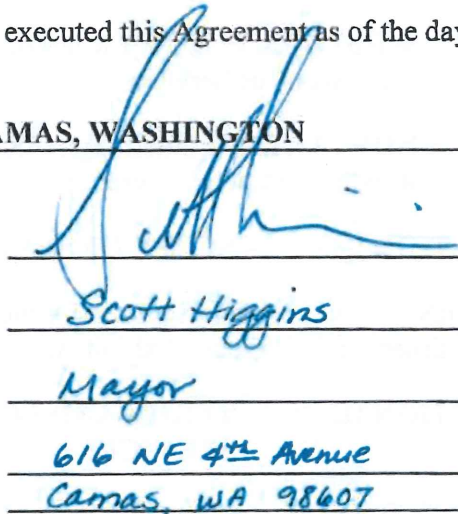 executed this Agreement as of the day
AMAS, WASHINGTON
Scott Higgins
Mayor
616 NE 4th Avenue
Camas, WA 98607